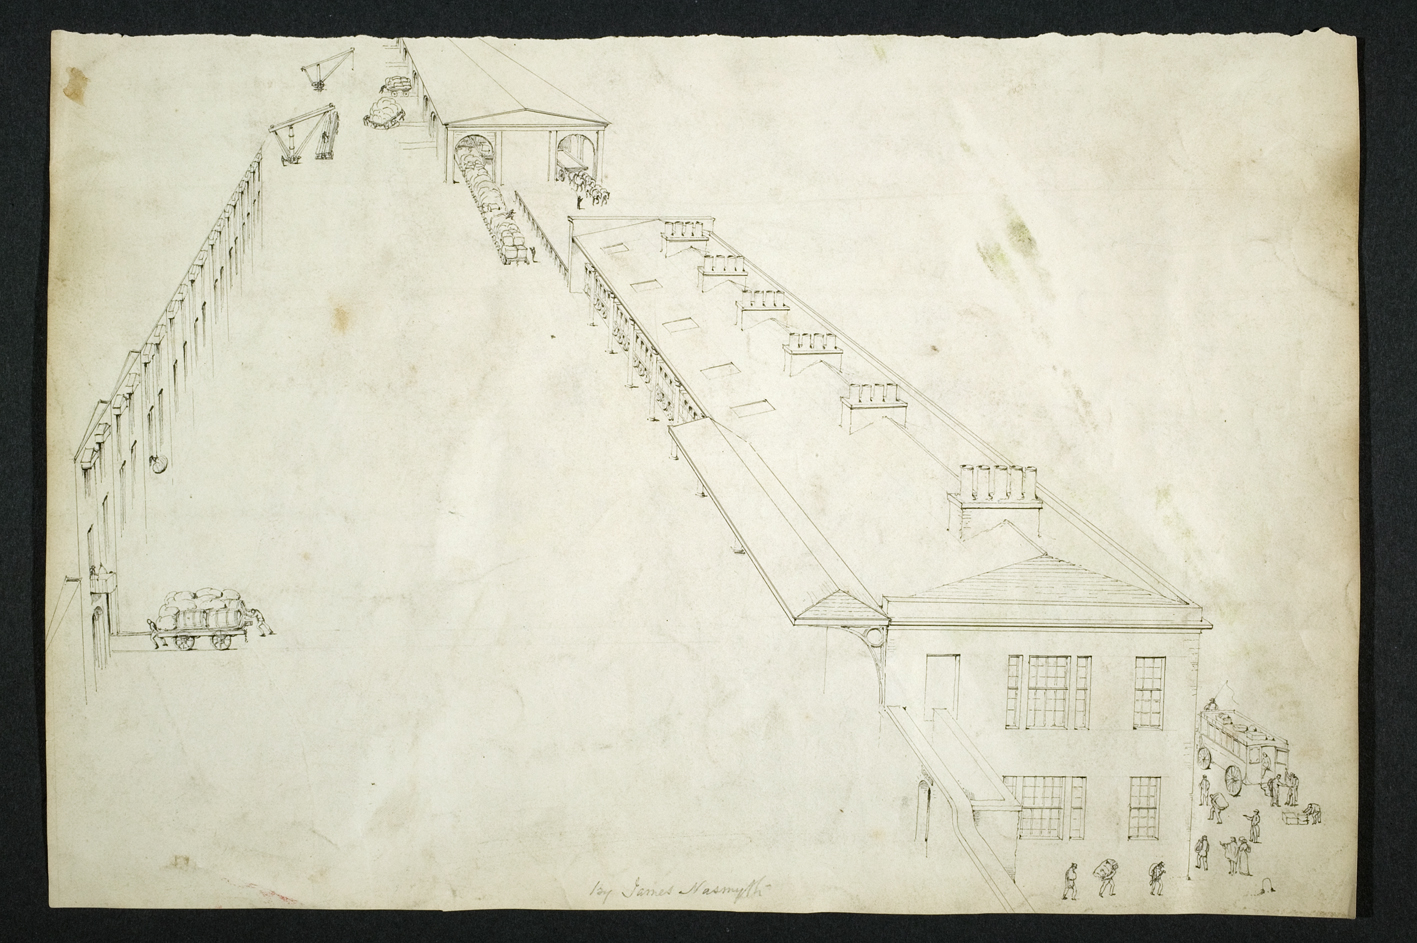 by James Nasmyth